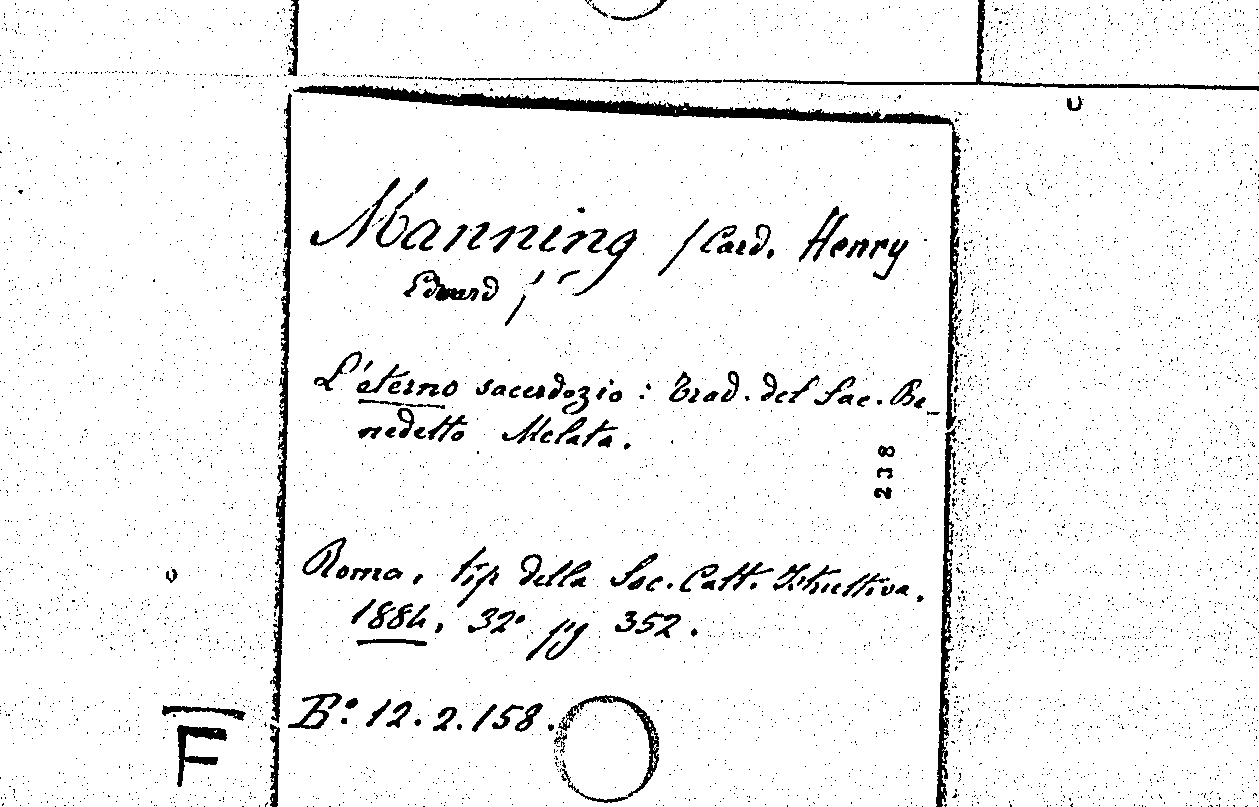 Manning /Card. Henry
Edward /
L'eterno sacerdozio : Trad. del Sac. Be_
nedetto Melata.
238
Roma, tip della Soc. Catt. Istruttiva.
1884, 32° pg 352.
B°: 12.2.158.
F